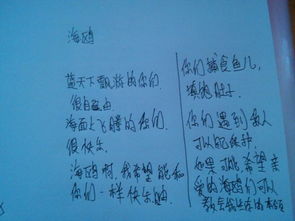 海鸥
蓝天下飘游的你们.
很自由
海面上飞腾的你们.
很快乐.
海鸥啊,我希望能和
你们一样快乐
你们捕食鱼儿,
填饱肚子
你们遇到敌人
可以
如果可能,希望亲
爱的海鸥们可以
教会我生存的本领